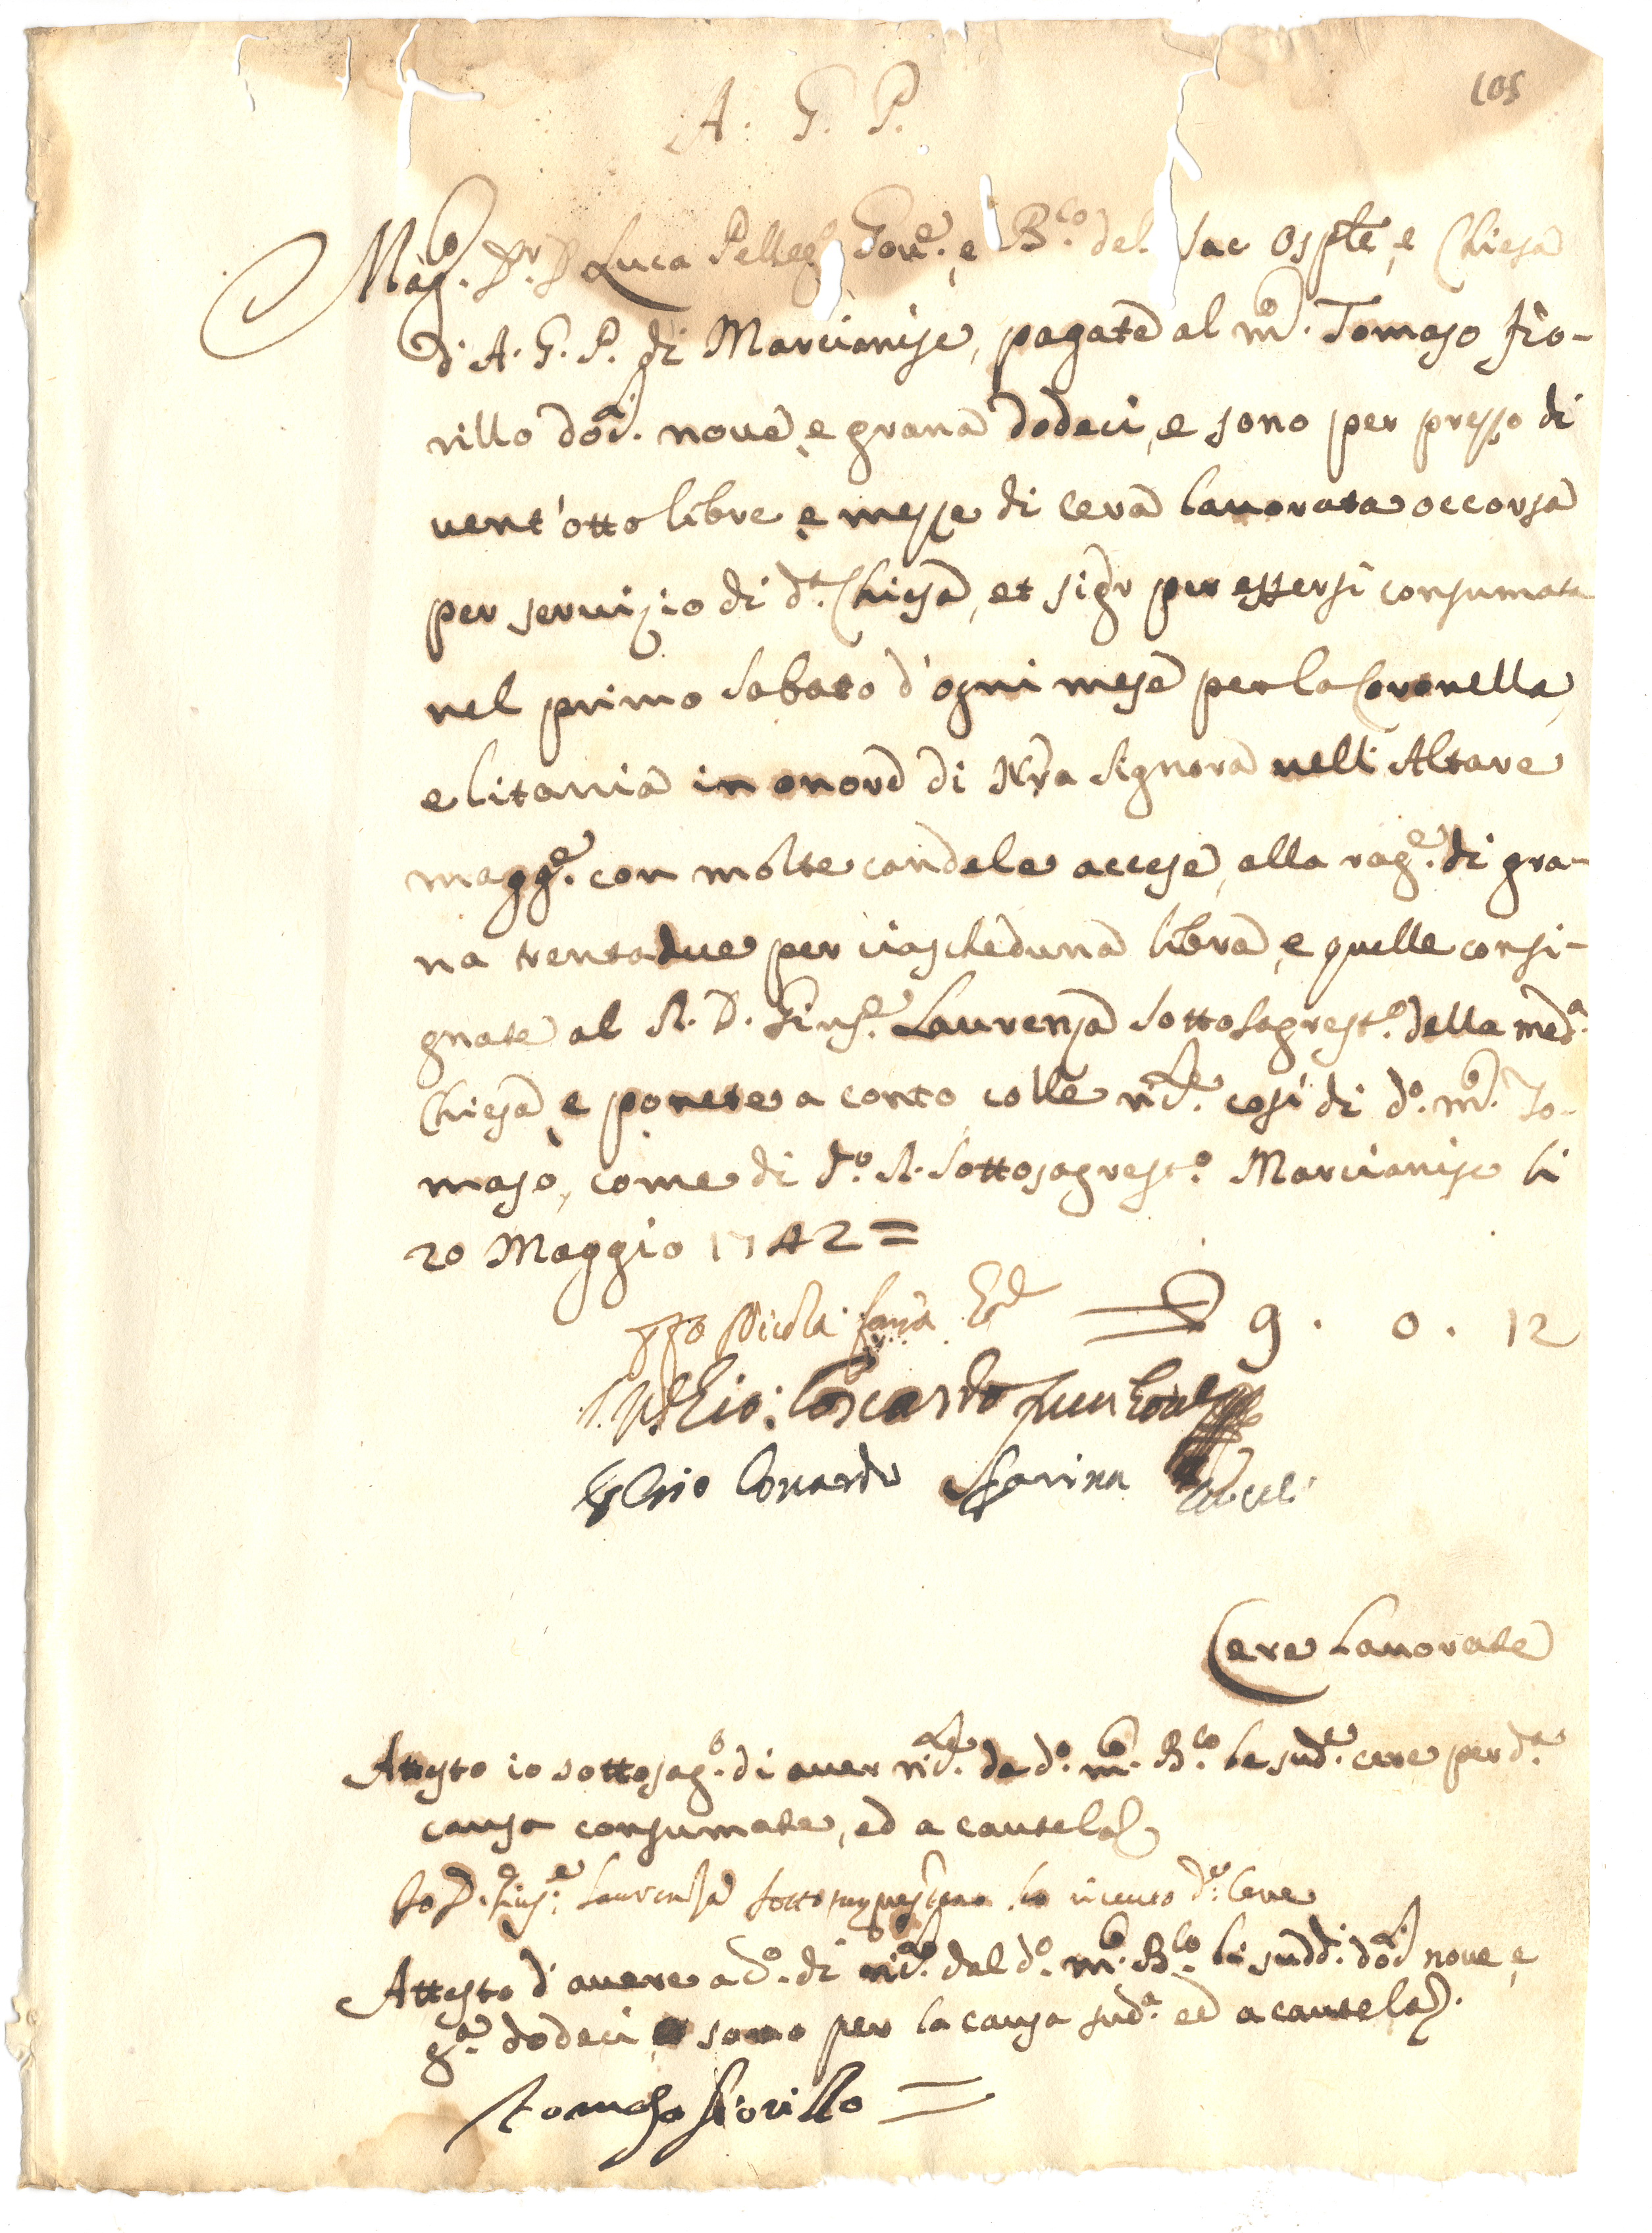 105
A. G. P.
Mag.co Dr. D. Luca Pelleg. Gov.e, e B.co del Sac Osp.le, e Chiesa
d'A. G. P. di Marcianise, pagate al m.co Tomaso Fio-
rillo doc.ti nove, e grana dodeci, e sono per prezzo di
vent'otto libre e mezze di cera lavorata occorsa
per servizio di d.a Chiesa, et sig.r per essersi consumata
nel primo Sabato d'ogni mese per la Coronella,
e litania in onore di Nra Signora nell'Altare
magg.e con molte candele accese, alla rag.e di gra-
na trentadue per ciascheduna libra, e quelle consi-
gnate al R. D. Gius.e Laurenza Sottosagrest.o della med.a
Chiesa, e ponete a conto colle ric.te così di d.o m.co To-
maso, come di d.o R. Sottosagrest.o Marcianise li
20 Maggio 1742 =
Nicola
D 9. 0. 12
Cere Lavorate
Attesto io sottosag.o di aver ric.te da d.o m.co B.co le sud.e cere per d.a
causa consumate, ed a cautela
Io D. Gius.e Laurenza sottosagrestano ho ricevuto d.e Cere
Attesto d'avere di ric.o dal d.o m.co B.co li sudd.i doc.ti nove, e
g.a dodeci e sono per la causa sud.a ed a cautela.
Tomaso Fiorillo =